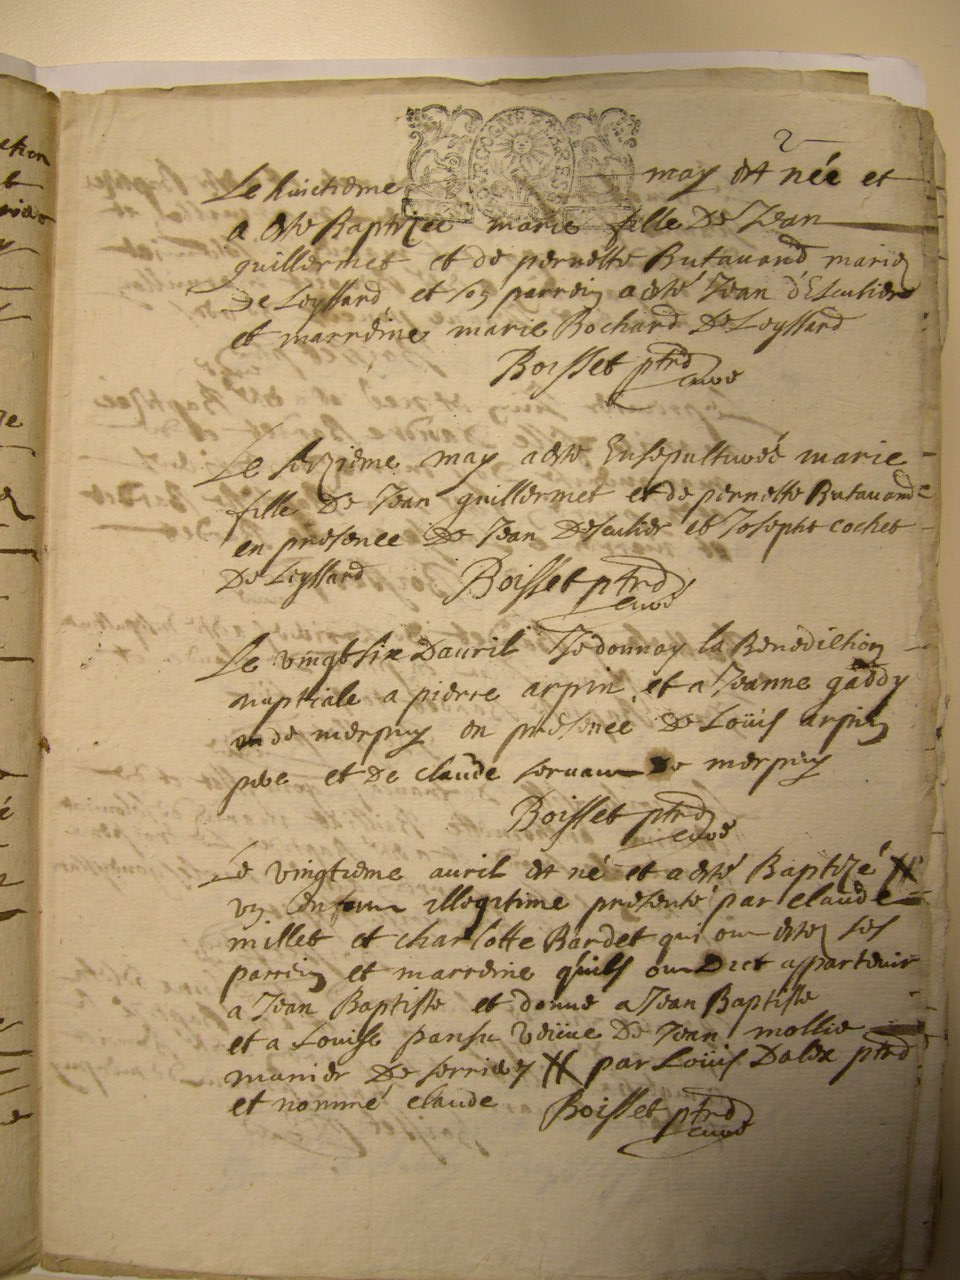 2
Le huictieme may est née et
a esté Baptizée marie fille De Jean
guillermet et de pernette Butavand mariez
De Leyssard et son parrein a esté Jean d'Esculier
et marreine marie Bochard De Leyssard
Boisset ptrd
curé
Le seizieme may a esté Ensepulturéé marie
fille De Jean guillermet et de pernette Butavand
en présence De Jean Desculier et Joseph cochet
De Leyssard Boisset ptrd
curé
Le vingt six D'auril Je donnay la Benediction
nuptiale a pierre arpin et a Jeanne gaddy
de merpuy en présence De Loüis arpin
pere et De claude servaun De merpuy
Boisset ptrd
curé
Le vingtieme auril est né et a esté Baptizé
un enfant illegitime présenté par claude
millet et charlotte Bardet qui ont estez ses
parrein et marreine quils ont Dict appartenir
a Jean Baptiste et donné a Jean Baptiste
et a Louise pansu veüve De Jean mollie
manier De serrieres par Loüis Dalex ptrd
et nommé claude Boisset ptrd
curé